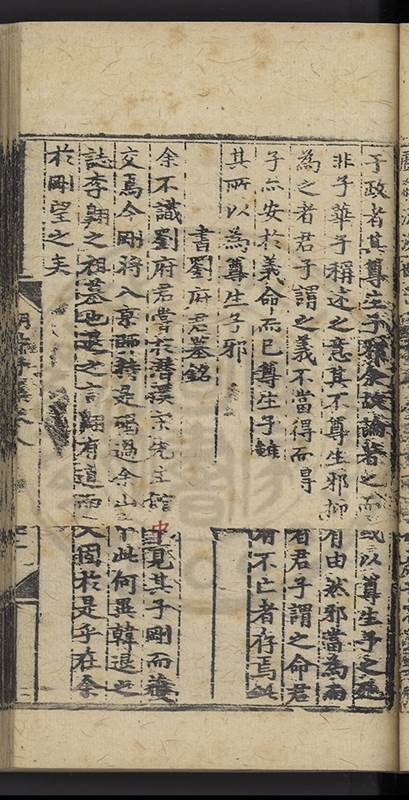 于政者其尊生子邪余故論著之而或以尊生子之
非子華子稱述之意其不尊生邪抑有由然邪當為而
為之者君子謂之義不當得而得者君子謂之命君
子亦安於義命而已尊生子雖有不亡者存焉
其所以為尊生子邪
書劉府君墓銘
余不識劉府君嘗於潛溪宋先生館中見其子剛而獲
交焉今剛將入京師持是碣過余山中此何異韓退之
誌李翱之祖墓也退之言翱有道而文固於是乎在余
於剛望之矣